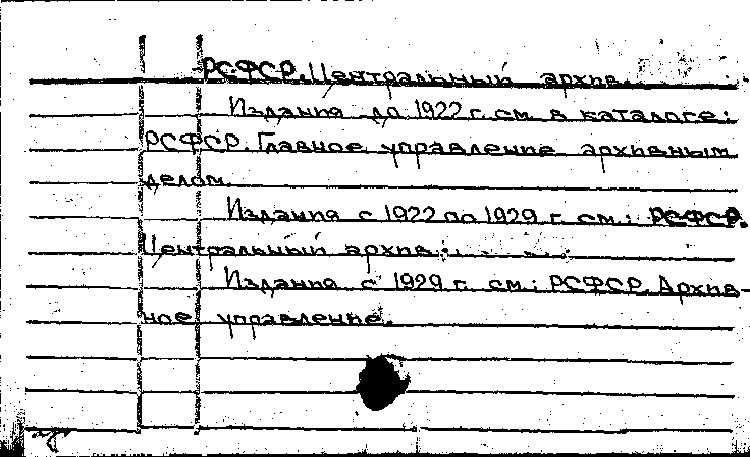 РСФСР. Центральный архив.
Издания до 1922 г. см. в каталоге:
РСФСР. Главное управление архивным
делом.
Издания с 1922 по 1929 г. см.: РСФСР.
Центральный архив.
Издания с 1929 г. см.: РСФСР. Архив-
ное управление.